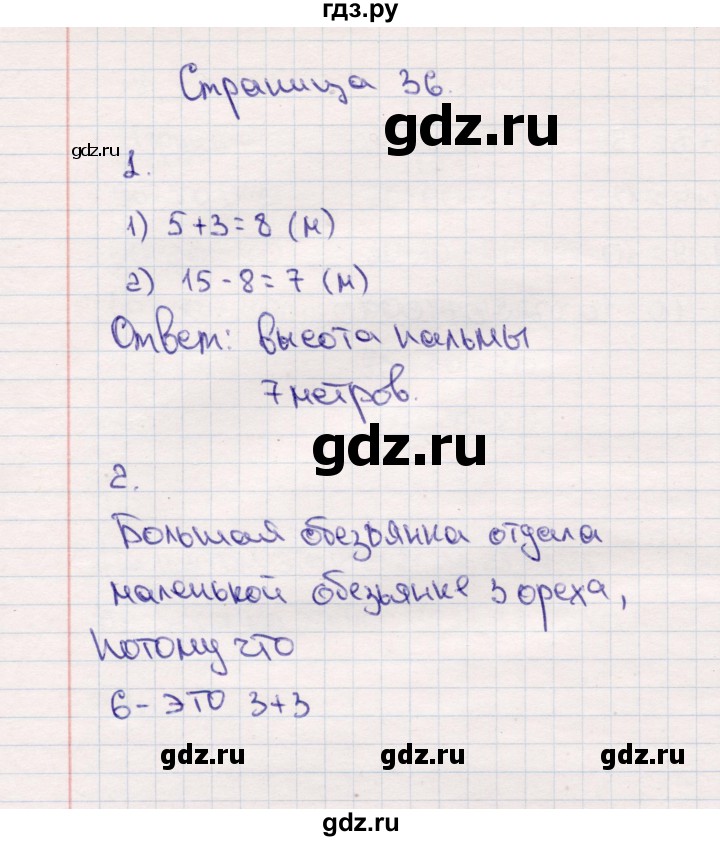 гдз.ру
Страница 36.
gdz.ru
gdz.ru
1.
1) 5+3=8 (м)
2) 15-8=7 (м)
Ответ: высота пальмы
7 метров.
gdz.ru
2.
Большая обезьянка отдала
маленькой обезьянке 3 ореха,
потому что
6- это 3+3
gdz.ru gdz.ru gdz.ru
gdz.ru